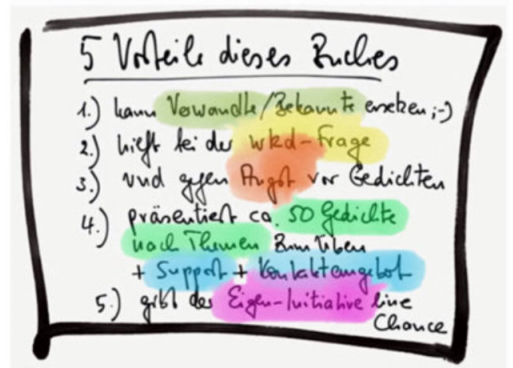 5 Vorteile dieses Buches
1.) kann Verwandte/Bekannte ersetzen ;-)
2.) hilft bei der wkd-Frage
3.) und gegen Angst vor Gedichten
4.) präsentiert ca. 50 Gedichte
nach Themen zum Üben
+ Support + Kontaktangebot
5.) gibt der Eigen-Initiative eine
Chance